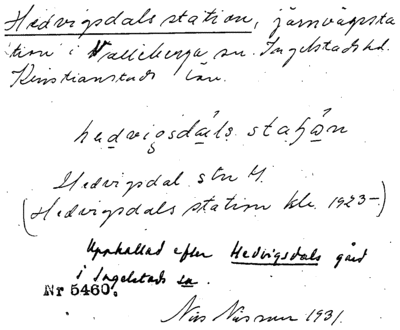 Hedvigsdals station, järnvägssta
tion i Valleberga sn. Ingelstads hd.
Kristianstads län.
hedvigsdáls staʃɷ̀n
Hedvigsdal stn H.
(Hedvigsdals station kbr. 1923-)
Uppkallad efter Hedvigsdals gård
i Ingelstads sn.
Nr 5460.
Nils Nilsson 1931.